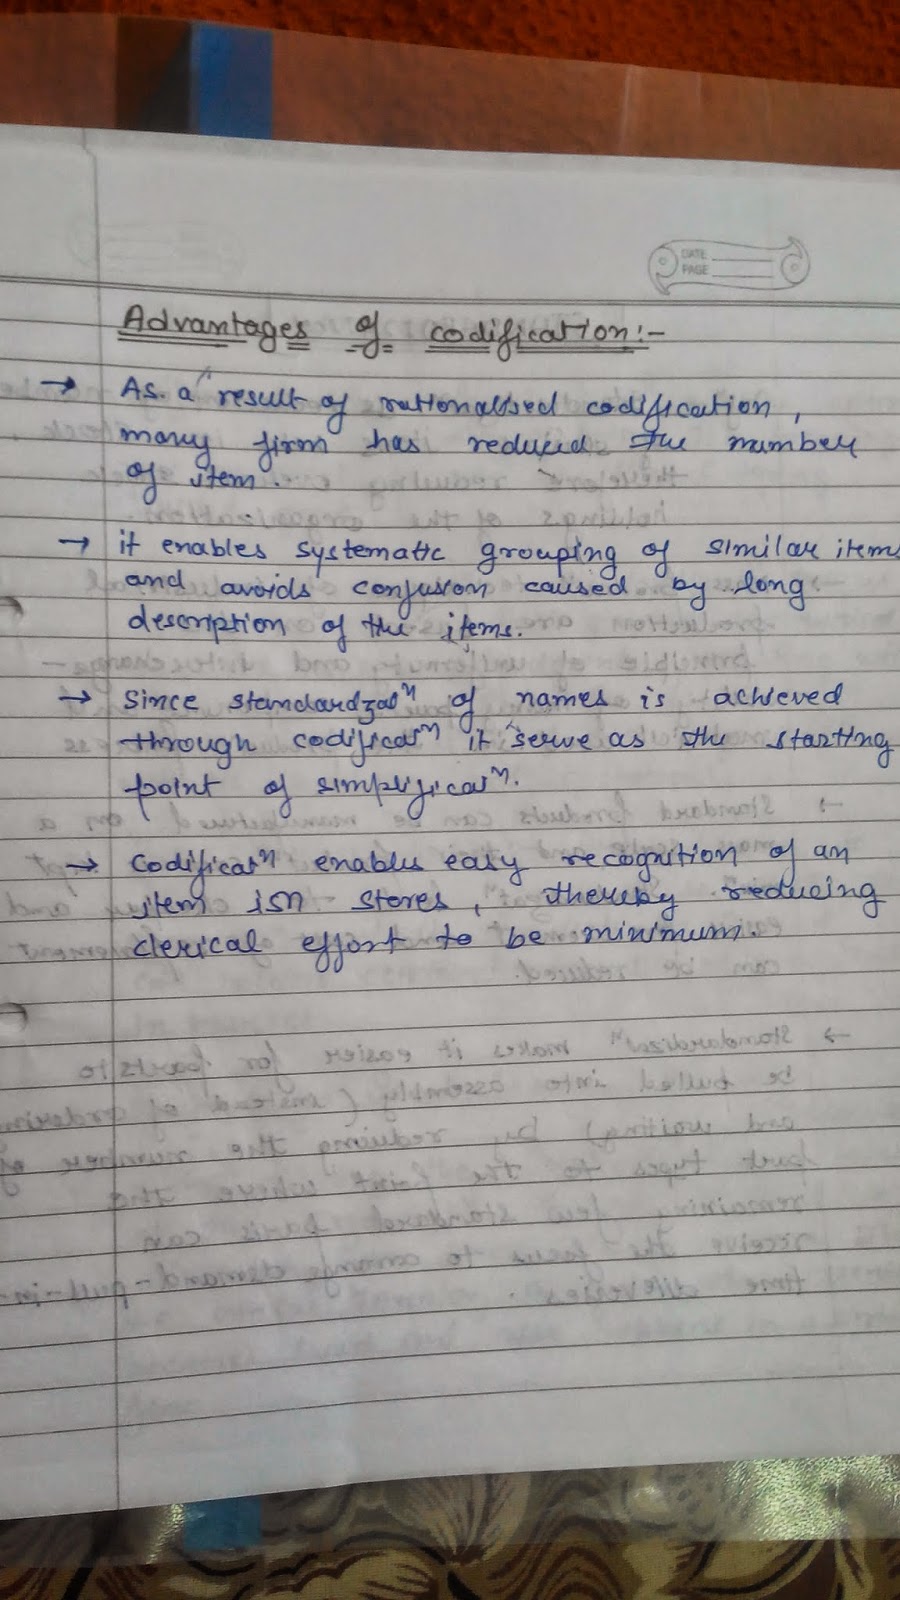 DATE
PAGE
Advantages of codification:-
→ As a result of rationalised codification,
many firm has reduced the number
of item.
→ it enables systematic grouping of similar items
and avoids confusion caused by long
description of the items.
→ Since standardizaⁿ of names is achieved
through codificaⁿ it serve as the starting
point of simplificaⁿ.
→ Codificaⁿ enables easy recognition of an
item isn stores, thereby reducing
clerical effort to be minimum.